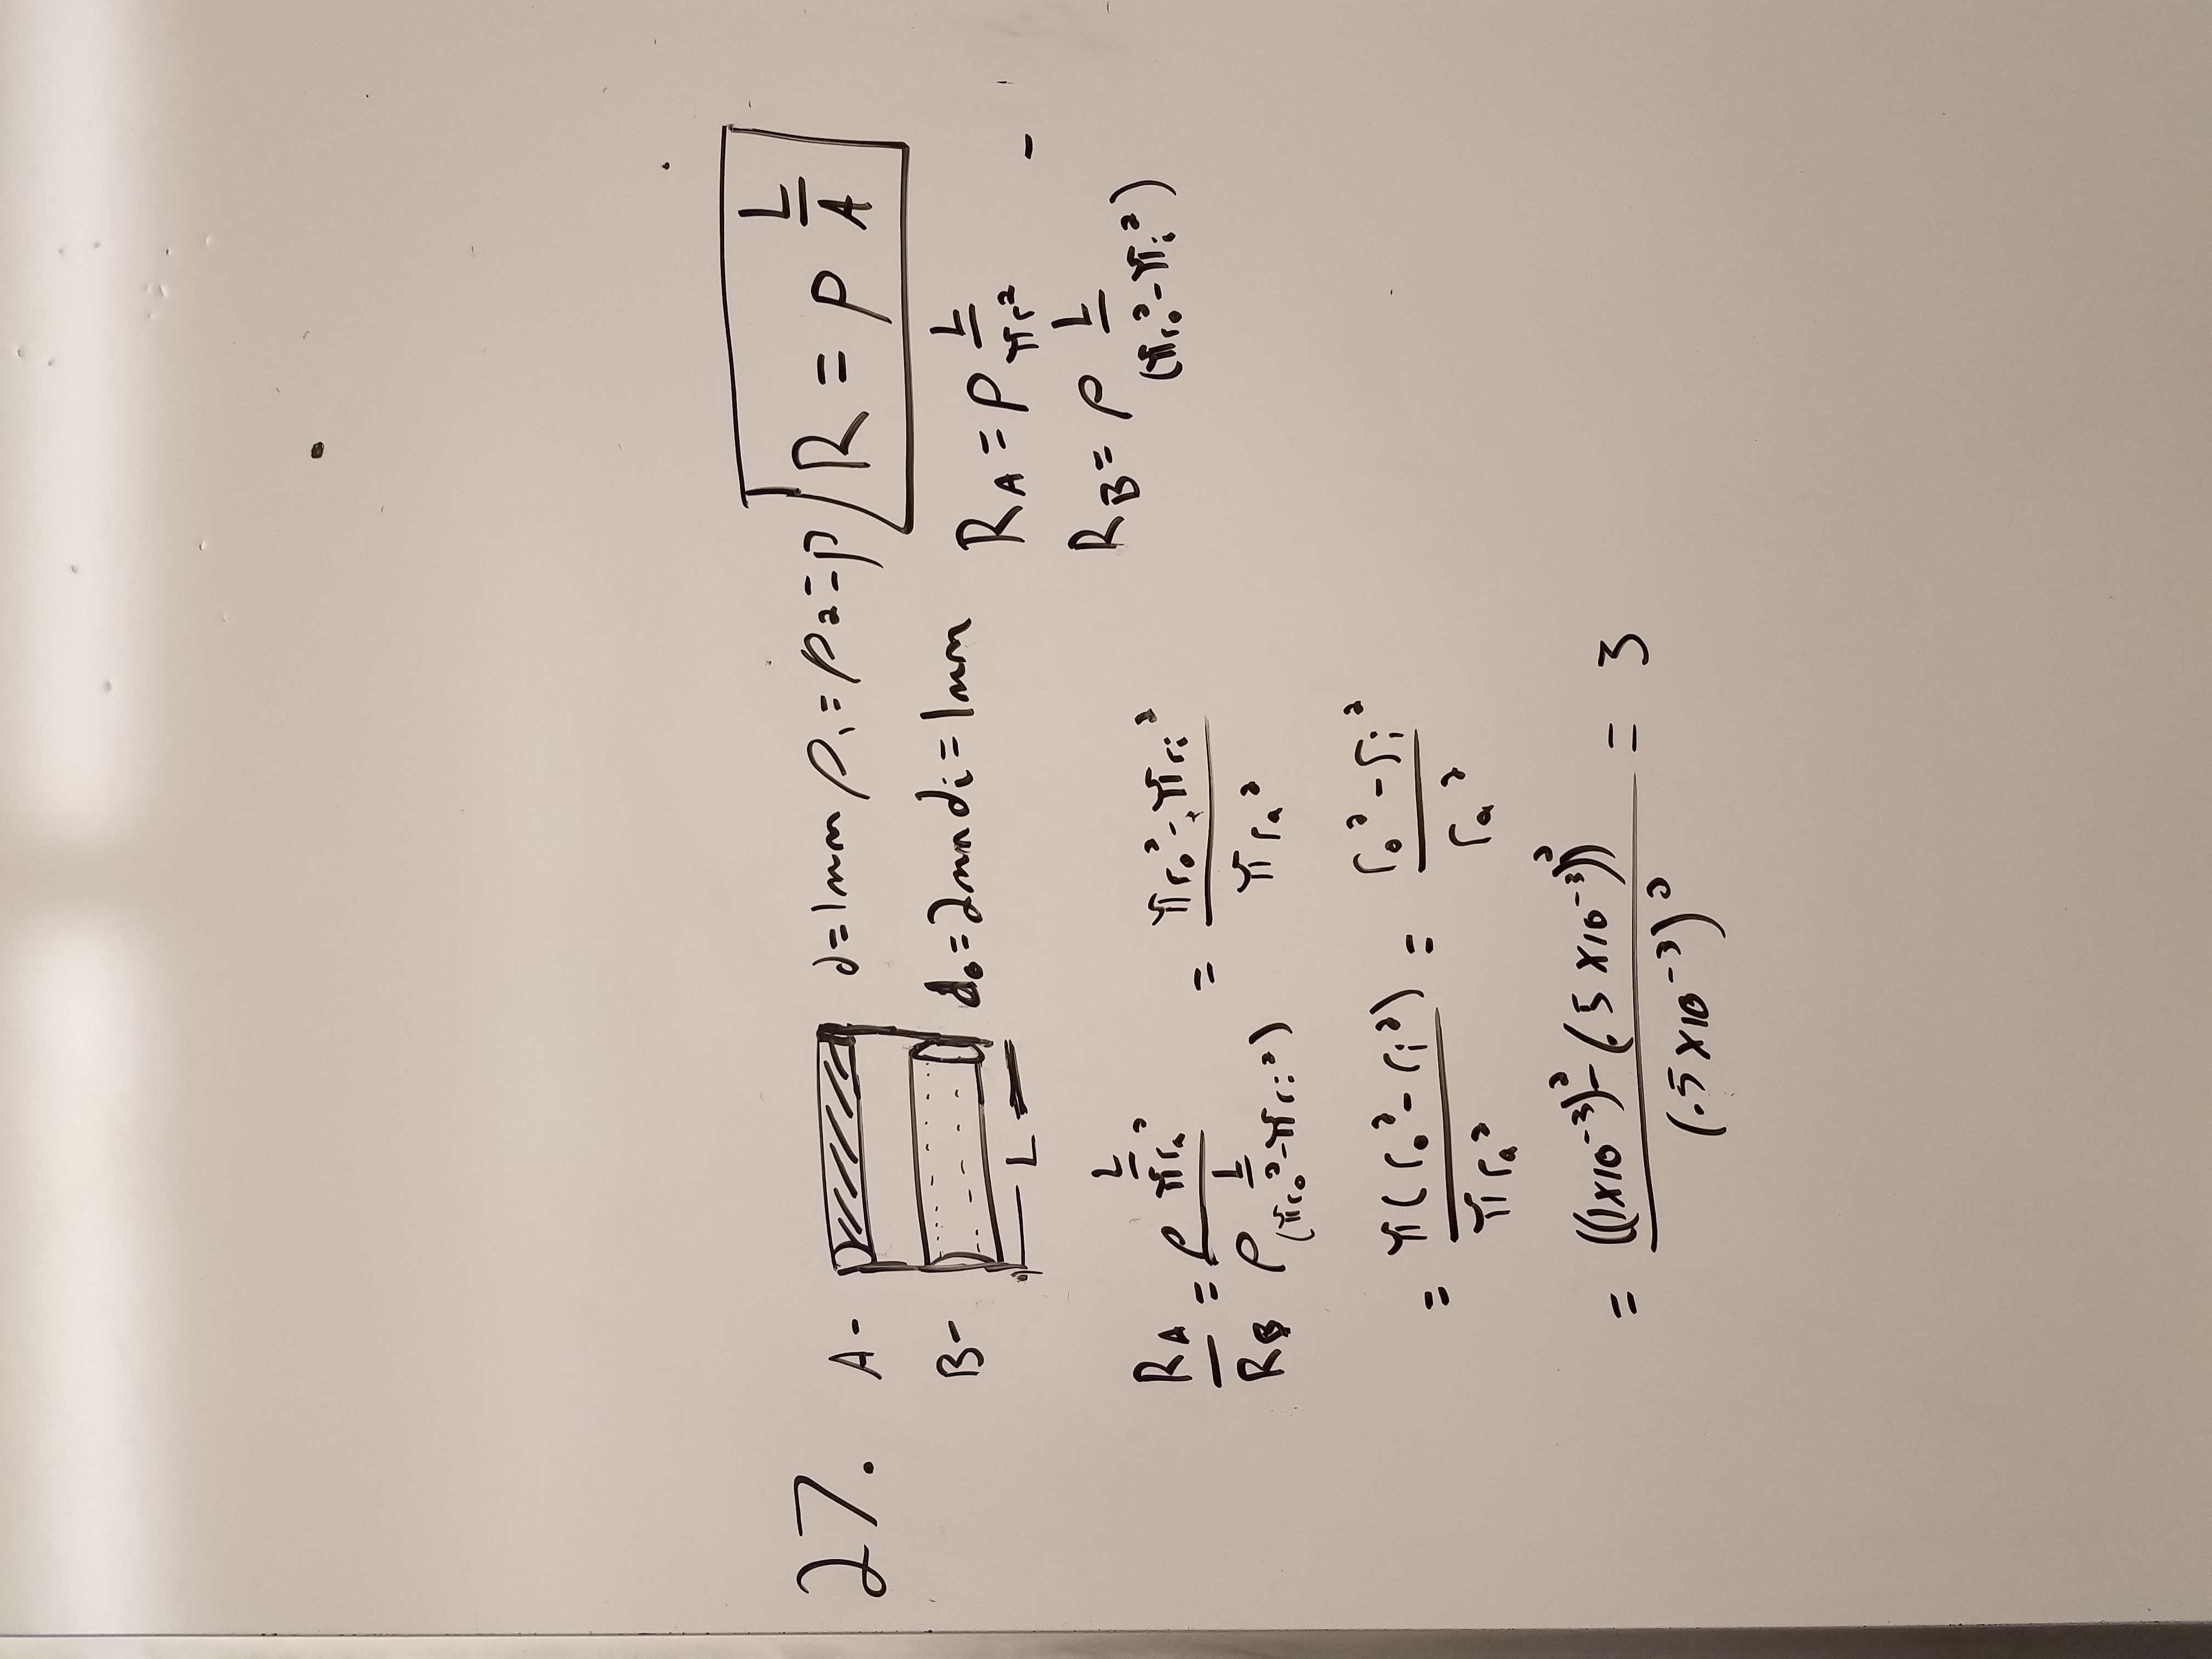 27.
A- d=1mm ρ₁=ρ₂=ρ
R = ρ L/A
B- d₀=2mm dᵢ=1mm
L
R_A = ρ L/πr²
R_B = ρ L/(πr₀²-πᵢ²)
R_A/R_B = (ρ L/πrₐ²)/(ρ L/(πr₀²-πrᵢ²)) = (πr₀²-πrᵢ²)/πrₐ²
= π(r₀²-rᵢ²)/πrₐ² = (r₀²-rᵢ²)/rₐ²
= ((1x10⁻³)²-(.5x10⁻³))²/(.5x10⁻³)² = 3